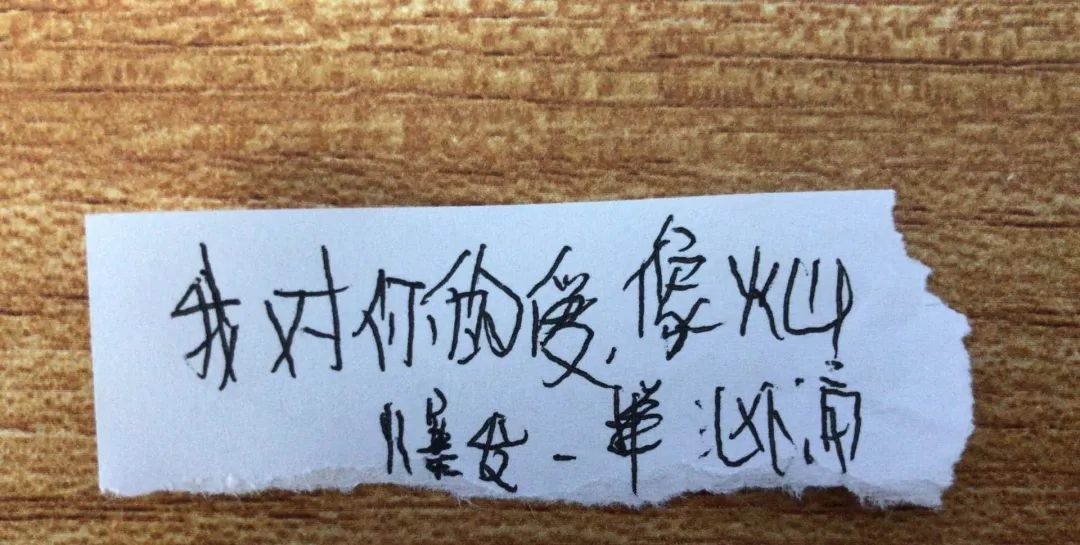 我对你的爱,像火山
爆发一样汹涌